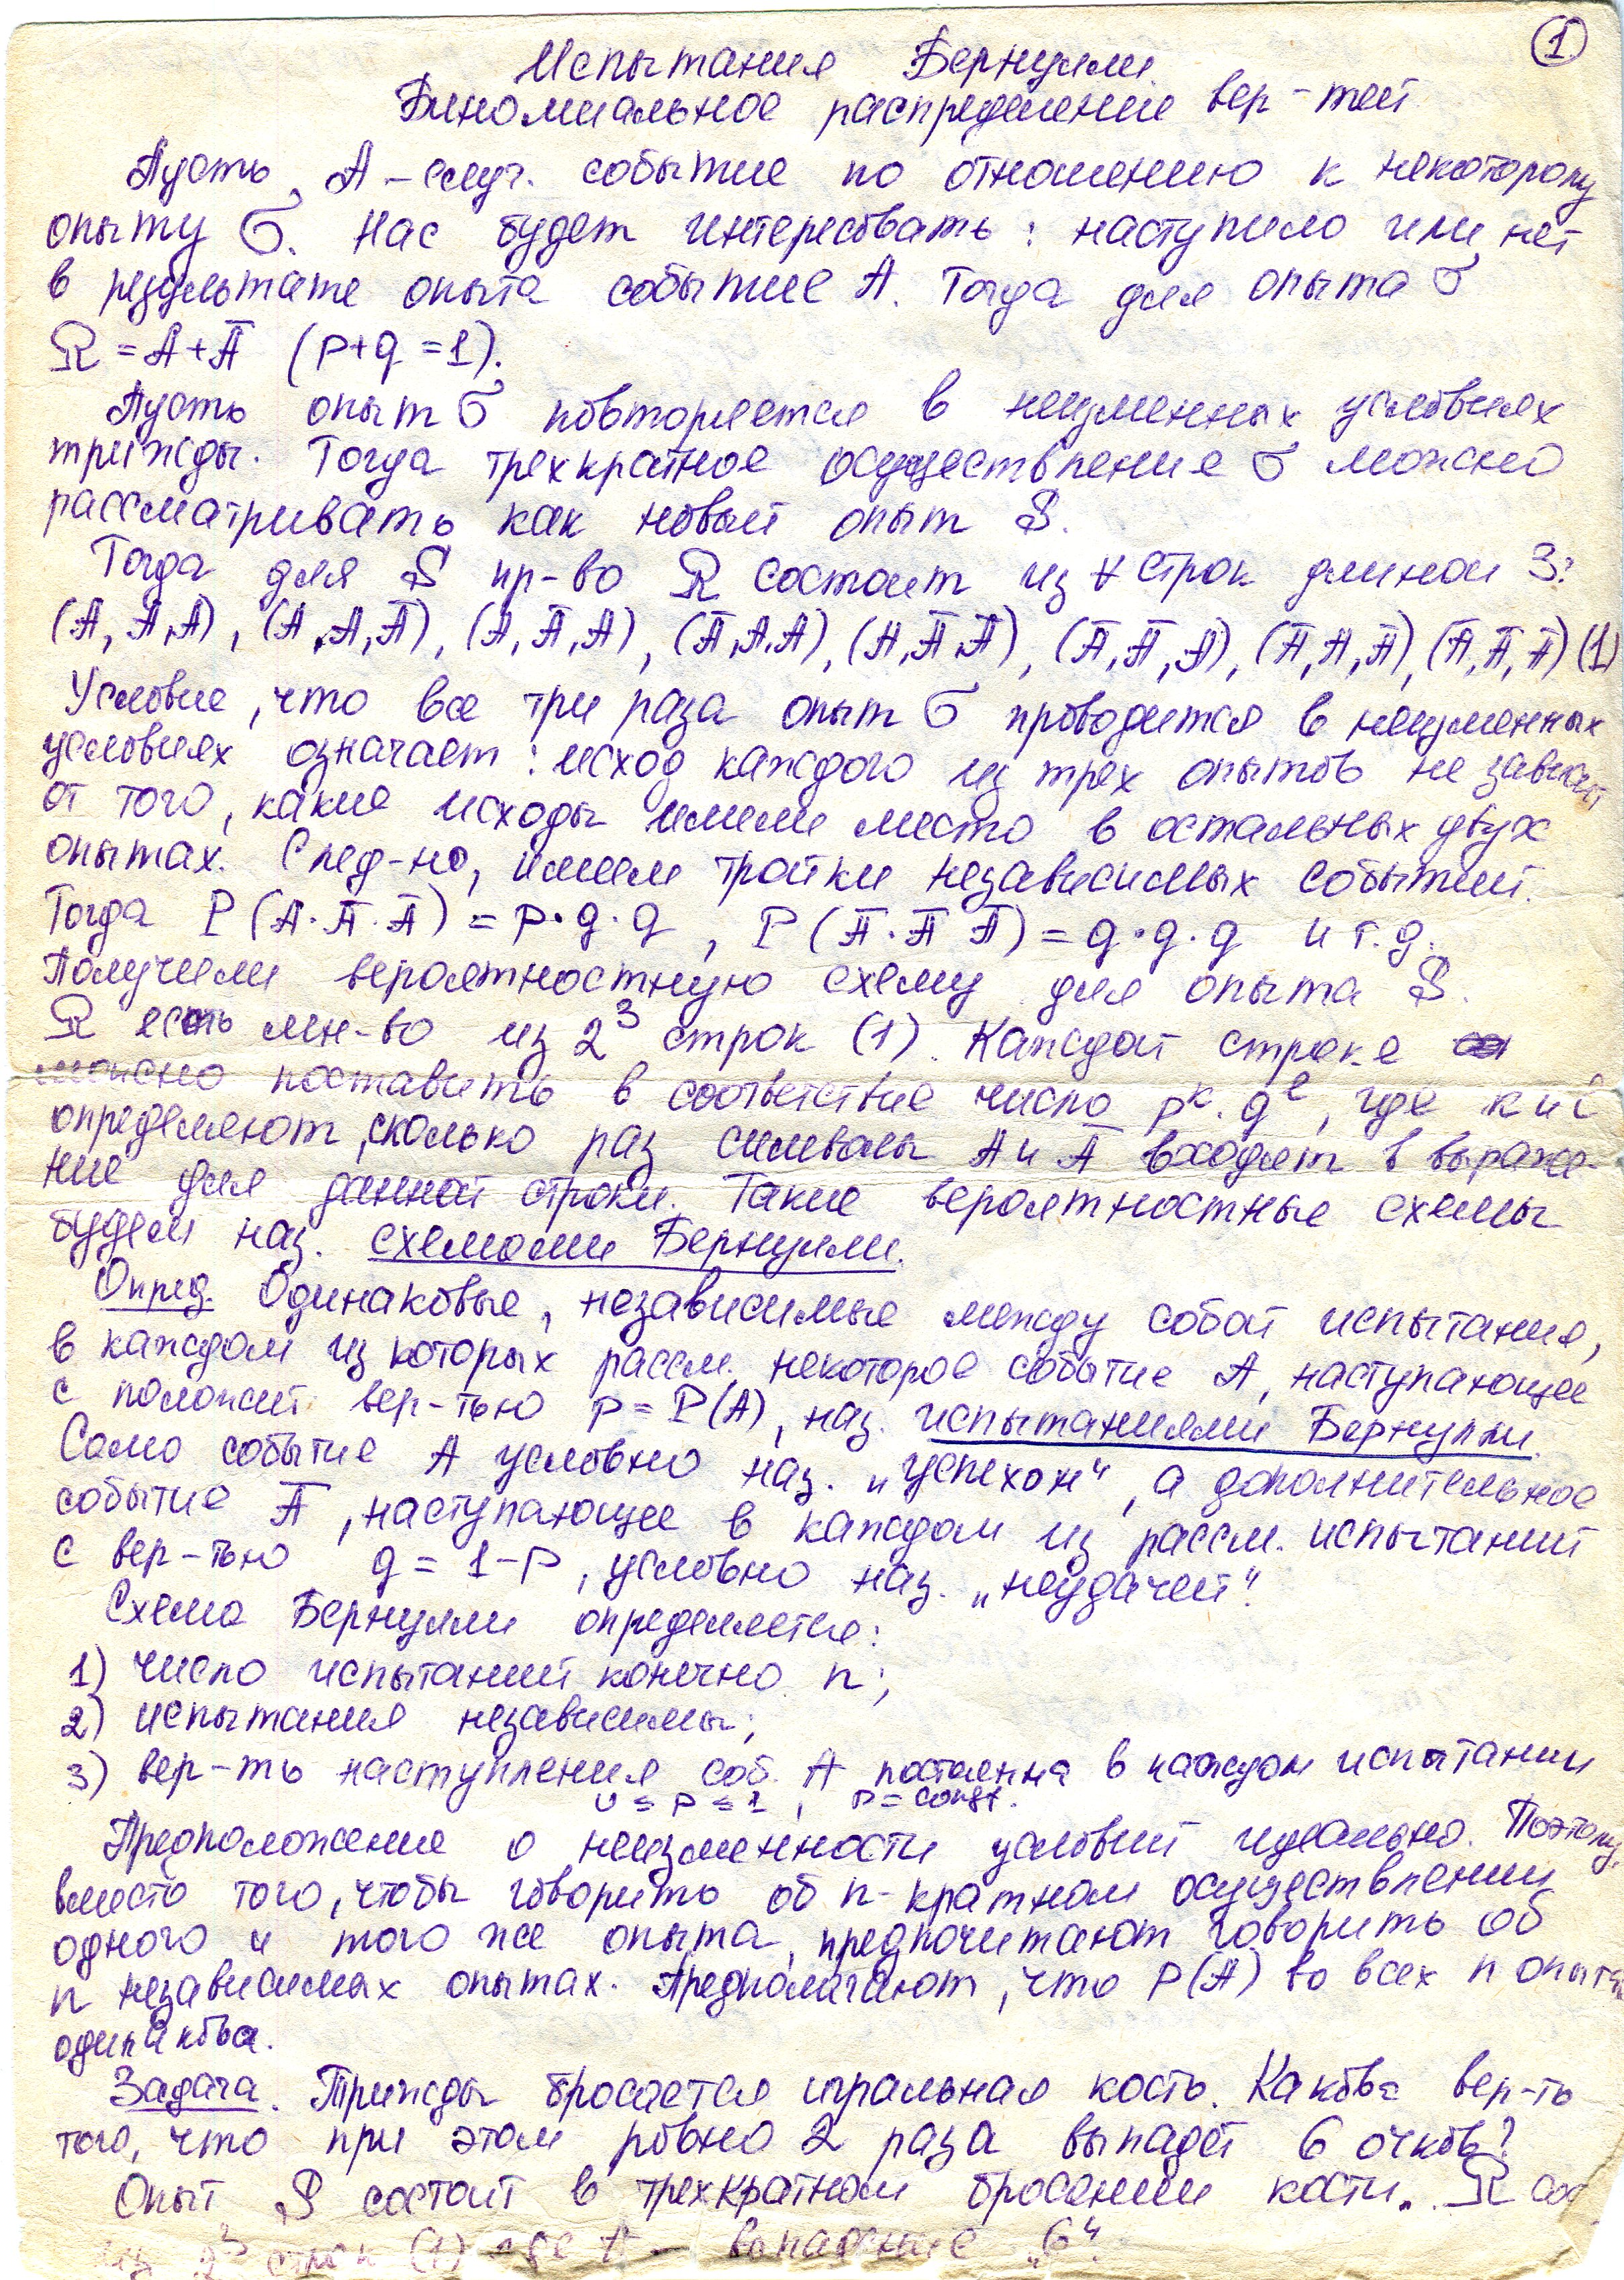 1
Испытания Бернулли.
Биномиальное распределение вер-тей
Пусть A – случ. событие по отношению к некоторому
опыту σ. Нас будет интересовать: наступило или нет
в результате опыта событие A. Тогда для опыта σ
Ω = A + Ā (p+q=1).
Пусть опыт σ повторяется в неизменных условиях
трижды. Тогда трехкратное осуществление σ можно
рассматривать как новый опыт S.
Тогда для S пр-во Ω состоит из строк длиной 3:
(A, A, A), (A, A, Ā), (A, Ā, A), (Ā, A, A), (A, Ā, Ā), (Ā, Ā, A), (Ā, A, Ā), (Ā, Ā, Ā) (1)
Условие, что все три раза опыт σ проводится в неизменных
условиях означает: исход каждого из трех опытов не зависит
от того, какие исходы имели место в остальных двух
опытах. След-но, имеем тройки независимых событий.
Тогда P(A·Ā·Ā) = p·q·q, P(Ā·Ā Ā) = q·q·q и т.д.
Получили вероятностную схему для опыта S.
Ω есть мн-во из 2³ строк (1). Каждой строке
можно поставить в соответствие число pᵏ·qˡ, где k и l
определяют, сколько раз символы A и Ā входят в выраже-
ние для данной строки. Такие вероятностные схемы
будем наз. схемами Бернулли.
Опред. Одинаковые, независимые между собой испытания,
в каждом из которых рассм. некоторое событие A, наступающее
с положит. вер-тью p = P(A), наз. испытаниями Бернулли.
Само событие A условно наз. „успехом“, а дополнительное
событие Ā, наступающее в каждом из рассм. испытаний
с вер-тью q = 1-p, условно наз. „неудачей“.
Схема Бернулли определяется:
1) число испытаний конечно n;
2) испытания независимы;
3) вер-ть наступления соб. A постоянна в каждом испытании
0 ≤ p ≤ 1, p = const.
Предположение о неизменности условий идеально. Поэтому,
вместо того, чтобы говорить об n-кратном осуществлении
одного и того же опыта, предпочитают говорить об
n независимых опытах. Предполагают, что P(A) во всех n опытах
одинакова.
Задача. Трижды бросается игральная кость. Какова вер-ть
того, что при этом ровно 2 раза выпадет 6 очков?
Опыт S состоит в трехкратном бросании кости. Ω сос
из 2³ строк (1) где A – выпадение „6“.